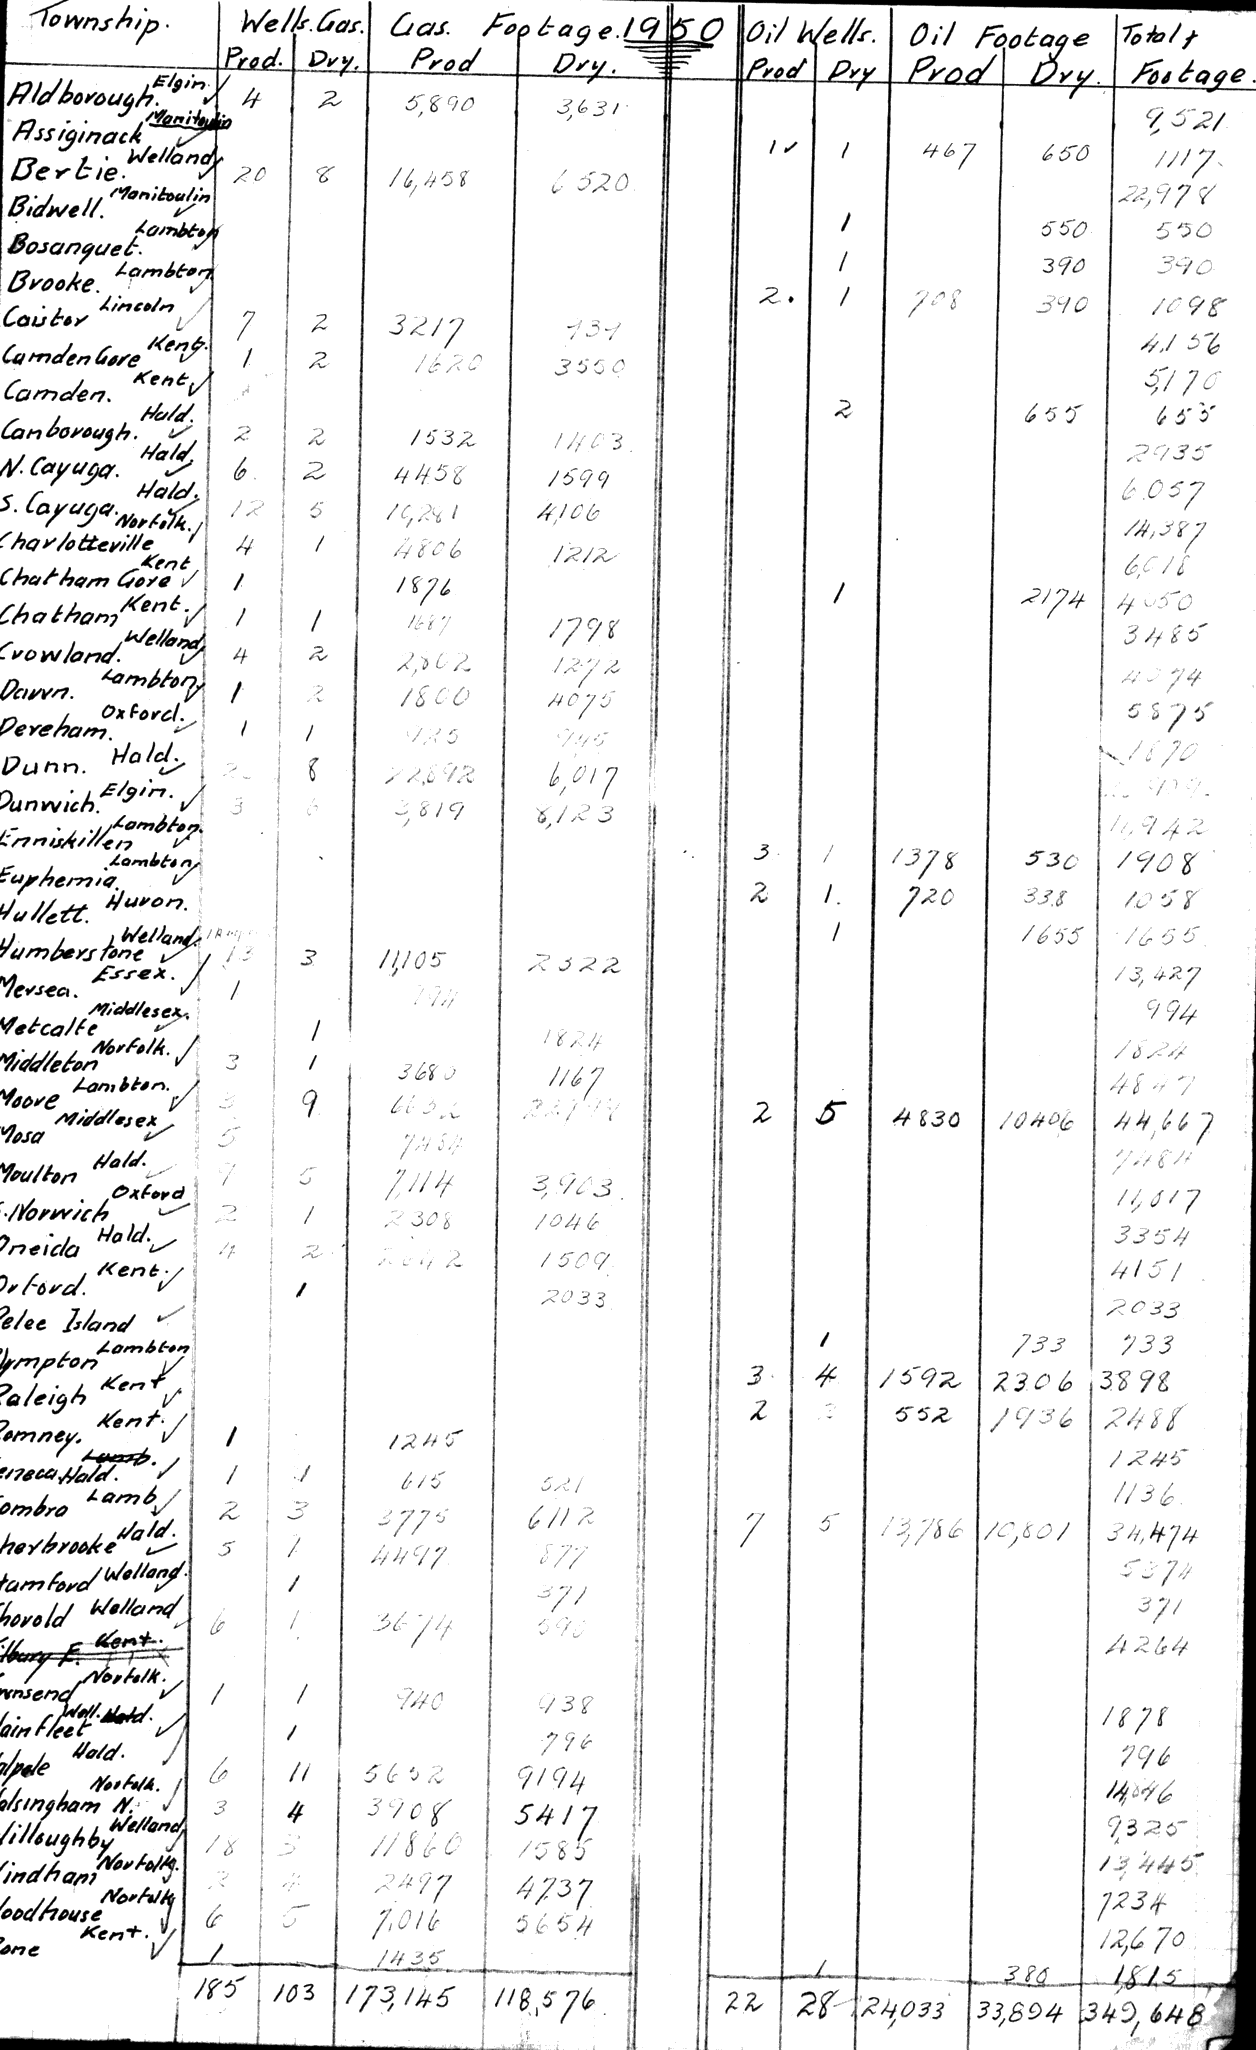 Township. Wells. Gas. Gas. Footage. 1950 Oil Wells. Oil Footage Total
Prod. Dry. Prod Dry. Prod Dry Prod Dry. Footage.
Aldborough. Elgin. 4 2 5,890 3,631 9,521
Assiginack Manitoulin 1 1 467 650 1117
Bertie. Welland 20 8 16,458 6520 22,978
Bidwell. Manitoulin 1 550 550
Bosanquet. Lambton 1 390 390
Brooke. Lambton 2. 1 708 390 1098
Caistor Lincoln 7 2 3217 4,156
Camden Gore Kent. 1 2 1620 3550 5,170
Camden. Kent 2 655 655
Canborough. Hald. 2 2 1532 1403 2935
N. Cayuga. Hald. 6. 2 4458 1599 6.057
S. Cayuga. Hald. 12 5 10,281 4,106 14,387
Charlotteville Norfolk. 4 1 4806 1212 6,018
Chatham Gore Kent 1 1876 1 2174 4050
Chatham Kent. 1 1 1687 1798 3485
Crowland. Welland 4 2 2,802 1272 4074
Dawn. Lambton 1 2 1800 4075 5875
Dereham. Oxford. 1 1 925 945 1870
Dunn. Hald. 8 6,017
Dunwich. Elgin. 3 6 3,819 8,123 11,942
Enniskillen Lambton. 3 1 1378 530 1908
Euphemia. Lambton 2 1. 720 338 1058
Hullett. Huron. 1 1655 1655
Humberstone Welland. 13 3 11,105 2322 13,427
Mersea. Essex. 1 994 994
Metcalfe Middlesex. 1 1824 1824
Middleton Norfolk. 3 1 3680 1167 4847
Moore Lambton. 3 9 2 5 4830 10406 44,667
Mosa Middlesex 5 7484 7484
Moulton Hald. 9 5 7,114 3,903 11,017
Norwich Oxford 2 1 2308 1046 3354
Oneida Hald. 4 2 2642 1509 4151
Orford. Kent. 1 2033 2033
Pelee Island 1 733 733
Plympton Lambton 3 4 1592 2306 3898
Raleigh Kent 2 3 552 1936 2488
Romney. Kent. 1 1245 1245
Seneca Lamb. Hald. 1 1 615 521 1136
Sombra Lamb 2 3 3775 6112 7 5 13,786 10,801 34,474
Sherbrooke Hald. 5 1 4497 877 5374
Stamford Welland. 1 371 371
Thorold Welland 6 1 3674 590 4264
Tilbury E. Kent.
Townsend Norfolk. 1 1 940 938 1878
Wainfleet Well. Hald. 1 796 796
Walpole Hald. 6 11 5652 9194
Walsingham N. Norfolk. 3 4 3908 5417 9,325
Willoughby Welland 18 3 11860 1585 13,445
Windham Norfolk. 2 4 2497 4737 7234
Woodhouse Norfolk 6 5 7,016 5654 12,670
Zone Kent. 1 1435 1 380 1,815
185 103 173,145 118,576 22 28 124,033 33,894 349,648